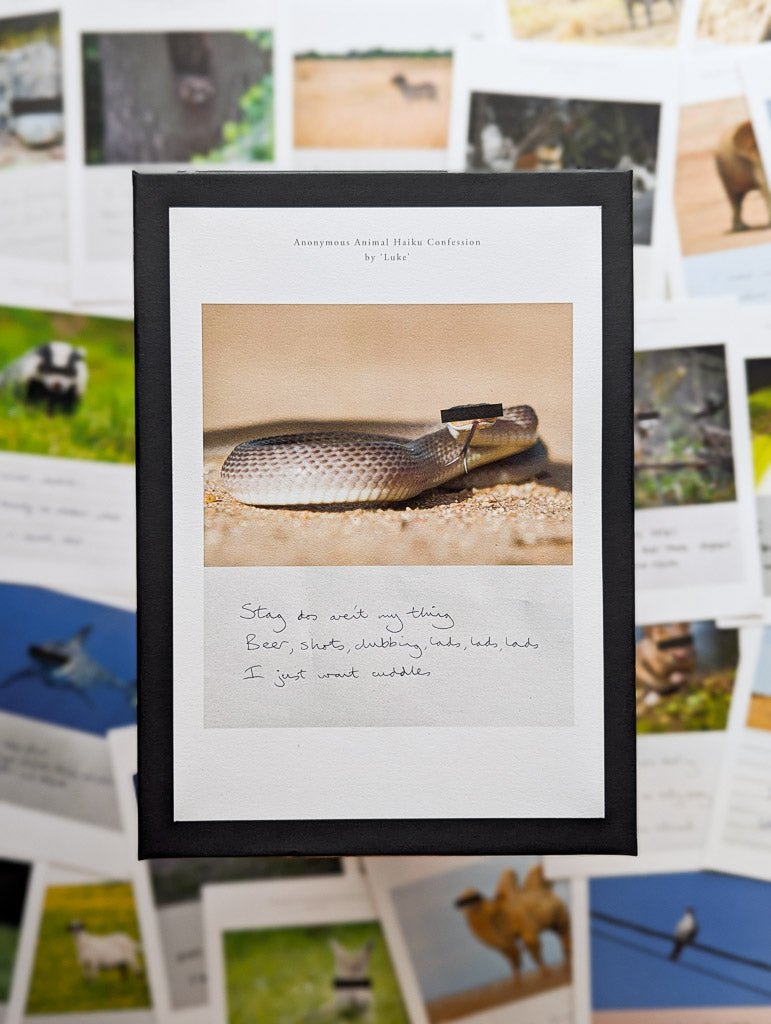 Anonymous Animal Haiku Confession
by 'Luke'
Stag dos aren't my thing
Beer, shots, clubbing, lads, lads, lads
I just want cuddles